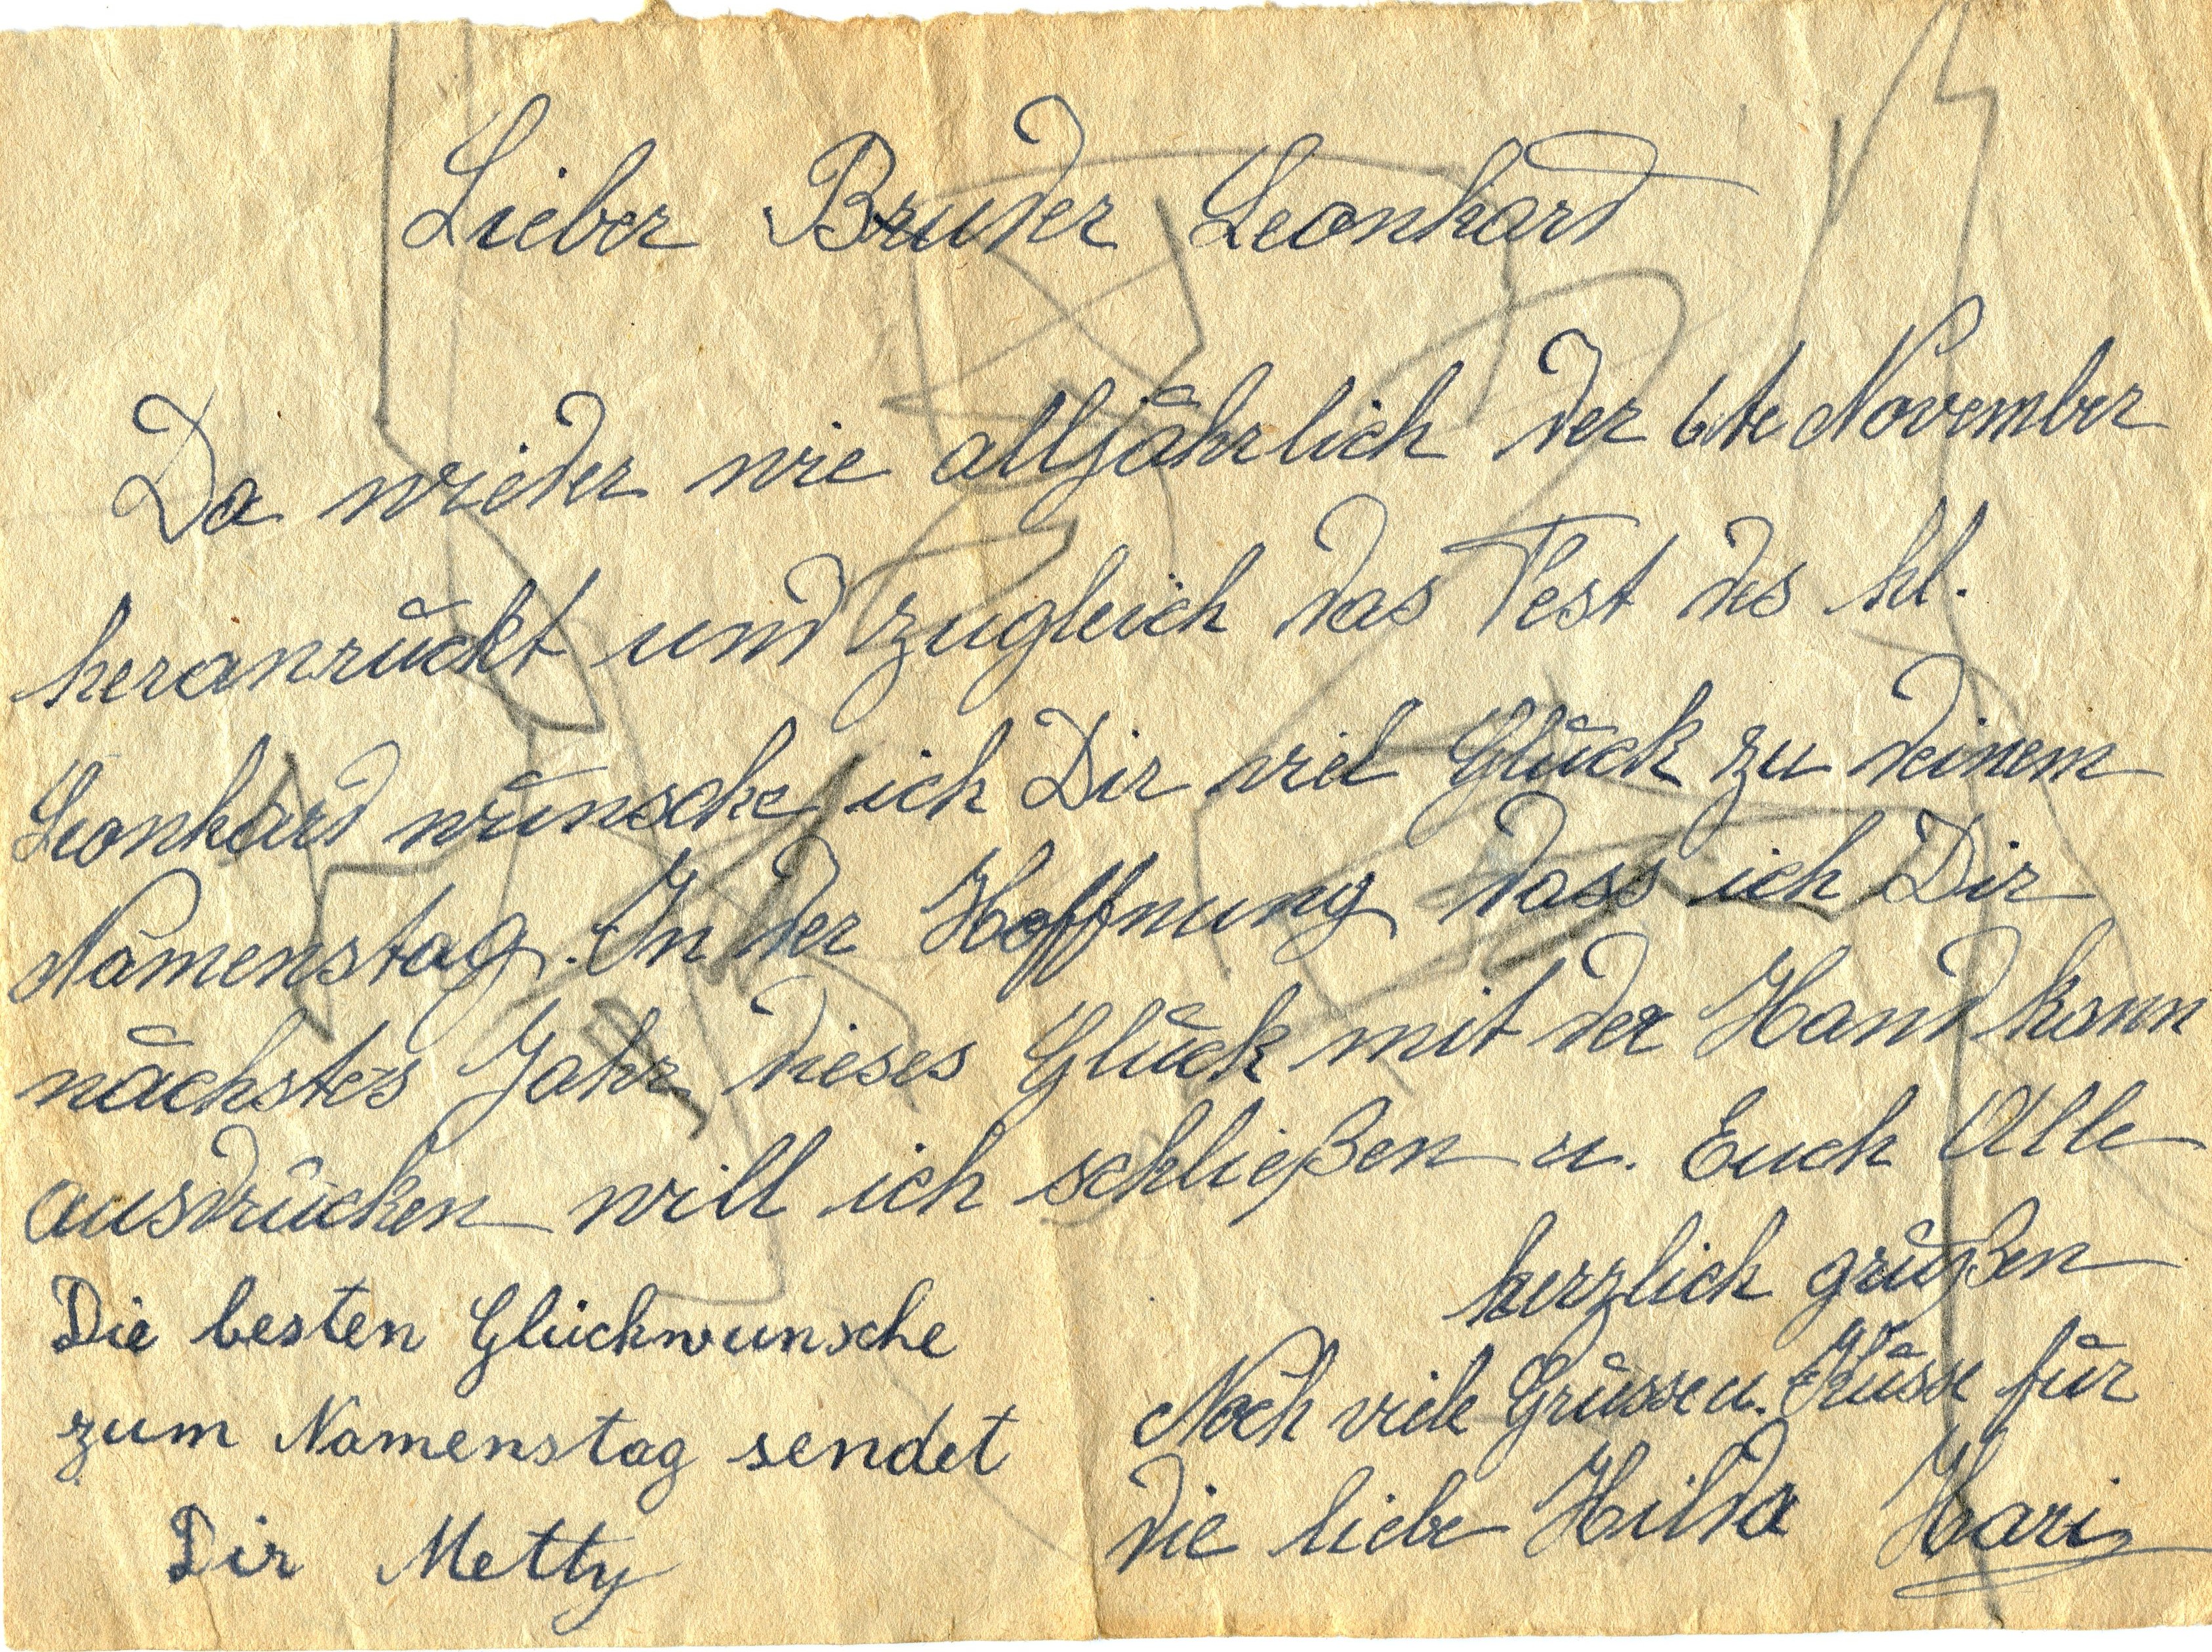 Lieber Bruder Leonhard
Da wieder wie alljährlich der 6te November
heranrückt und zugleich das Fest des hl.
Leonhard wünsche ich Dir viel Glück zu deinem
Namenstag. In der Hoffnung dass ich Dir
nächstes Jahr dieses Glück mit der Hand kann
ausdrücken will ich schließen u. Euch Alle
herzlich grüßen
Die besten Glückwunsche
zum Namenstag sendet
Dir Metty
Noch viele Grüsse u. Küsse für
die liebe Hilda Hari